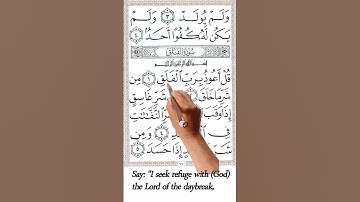 وَلَمْ يُولَدْ ٣ وَلَمْ
يَكُن لَّهُۥ كُفُوًا أَحَدٌۢ ٤
سُورَةُ الفَلَقِ
بِسْمِ اللَّهِ الرَّحْمَٰنِ الرَّحِيمِ
قُلْ أَعُوذُ بِرَبِّ ٱلْفَلَقِ ١ مِن
شَرِّ مَا خَلَقَ شَرِّ غَاسِقٍ
إِذَا وَقَبَ ٱلنَّفَّٰثَٰتِ
فِى وَمِن
شَرِّ إِذَا حَسَدَ ٥
Say: "I seek refuge with (God)
the Lord of the daybreak,